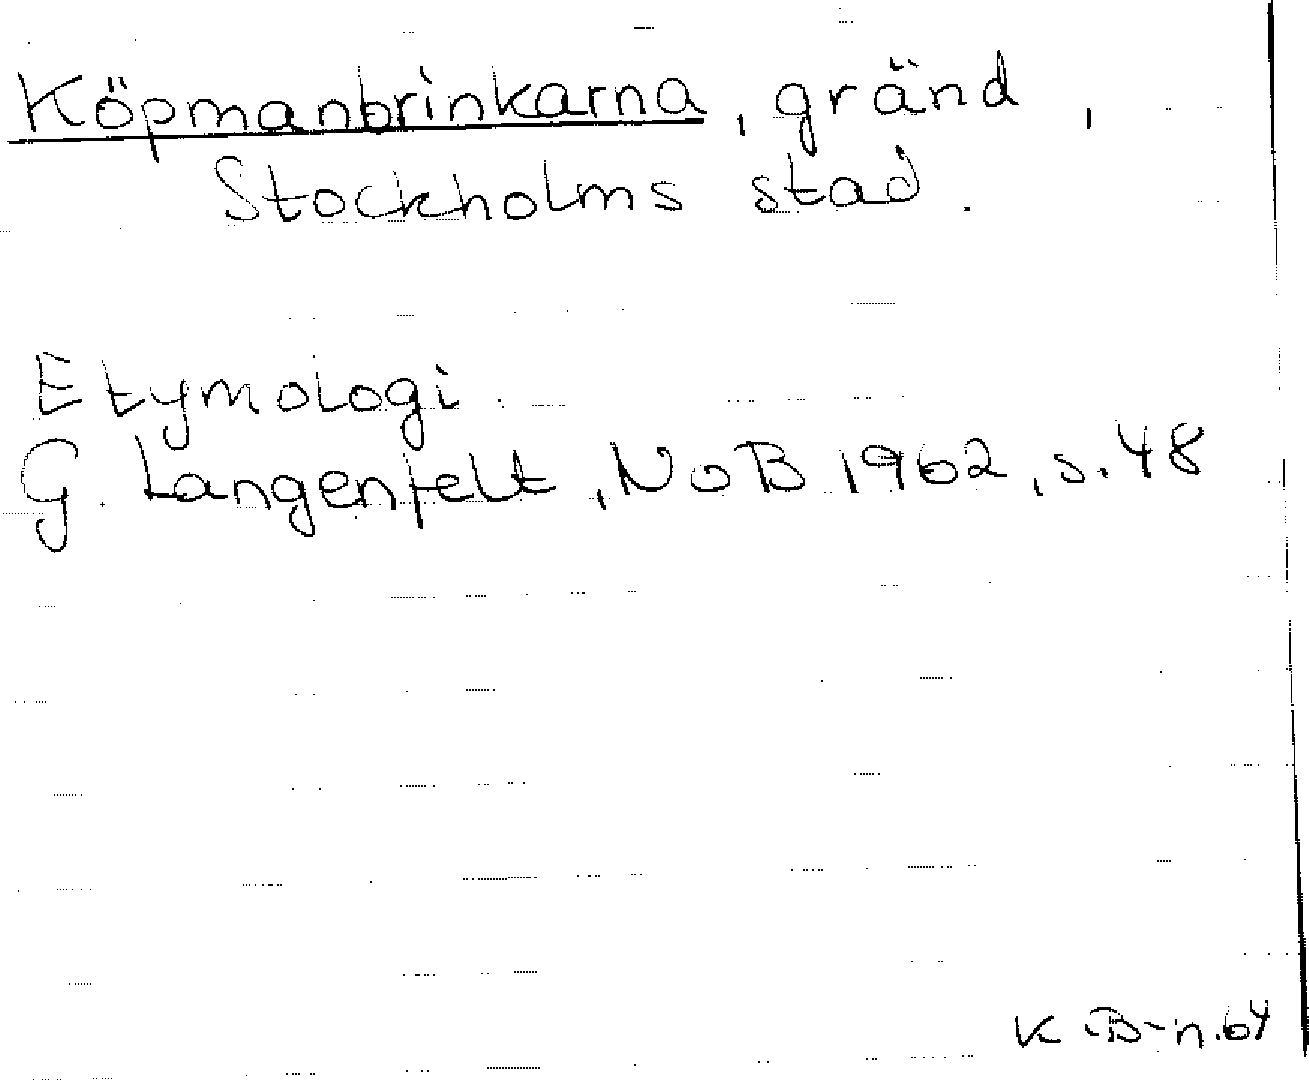 Köpmanbrinkarna, gränd,
Stockholms stad.
Etymologi
G. Langenfelt, NoB 1962, s. 48
K B-n. 64